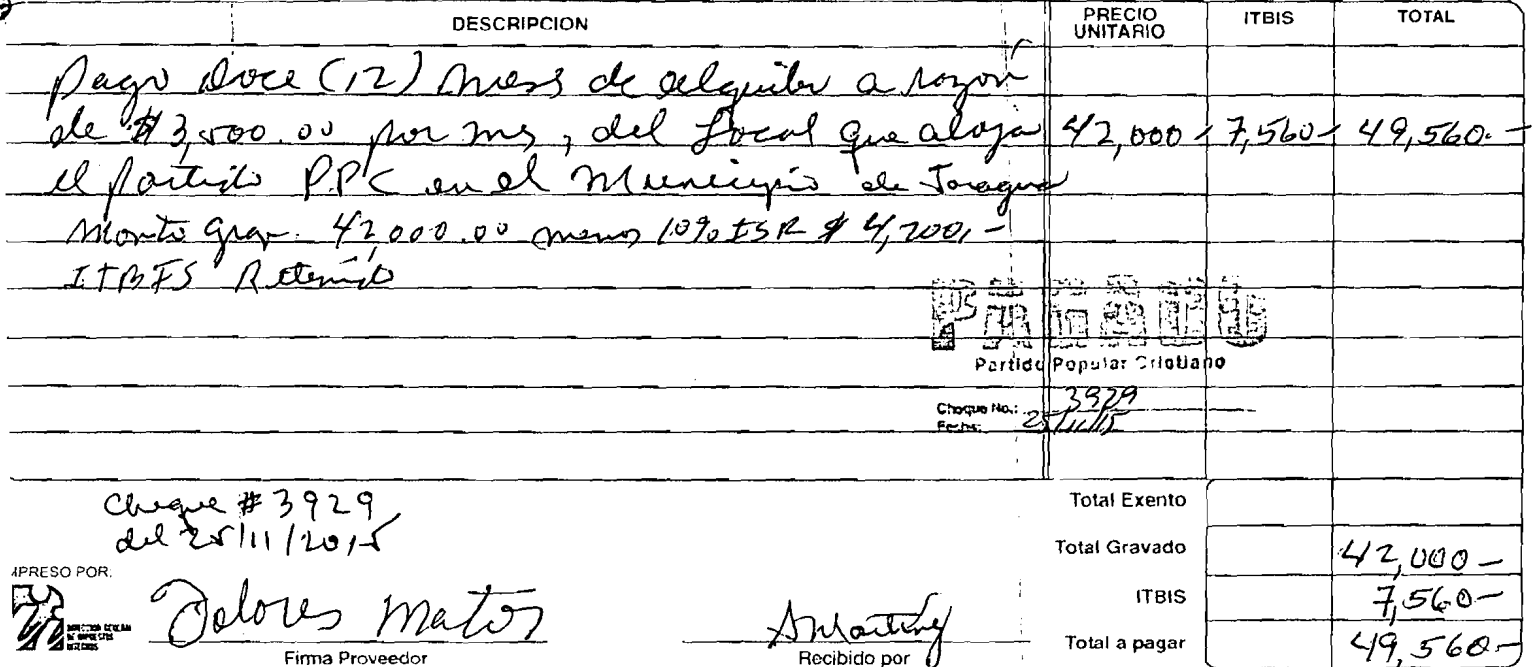 DESCRIPCION PRECIO UNITARIO ITBIS TOTAL
Pago doce (12) meses de alquiler a razon
de $3,500.00 por mes, del Local que aloja 42,000- 7,560- 49,560.-
el Partido PPC en el Municipio de
Monto Grav. 42,000.00 menos 10% ISR $ 4,200,-
ITBIS Retenido
PAGADO
Partido Popular Cristiano
Cheque No.: 3929
Fecha: 25/11/15
Cheque # 3929
del 25/11/2015
Total Exento
Total Gravado 42,000-
ITBIS 7,560-
Total a pagar 49,560-
MPRESO POR.
DIRECCION GENERAL DE IMPUESTOS INTERNOS
Dolores Matos
Firma Proveedor
Recibido por